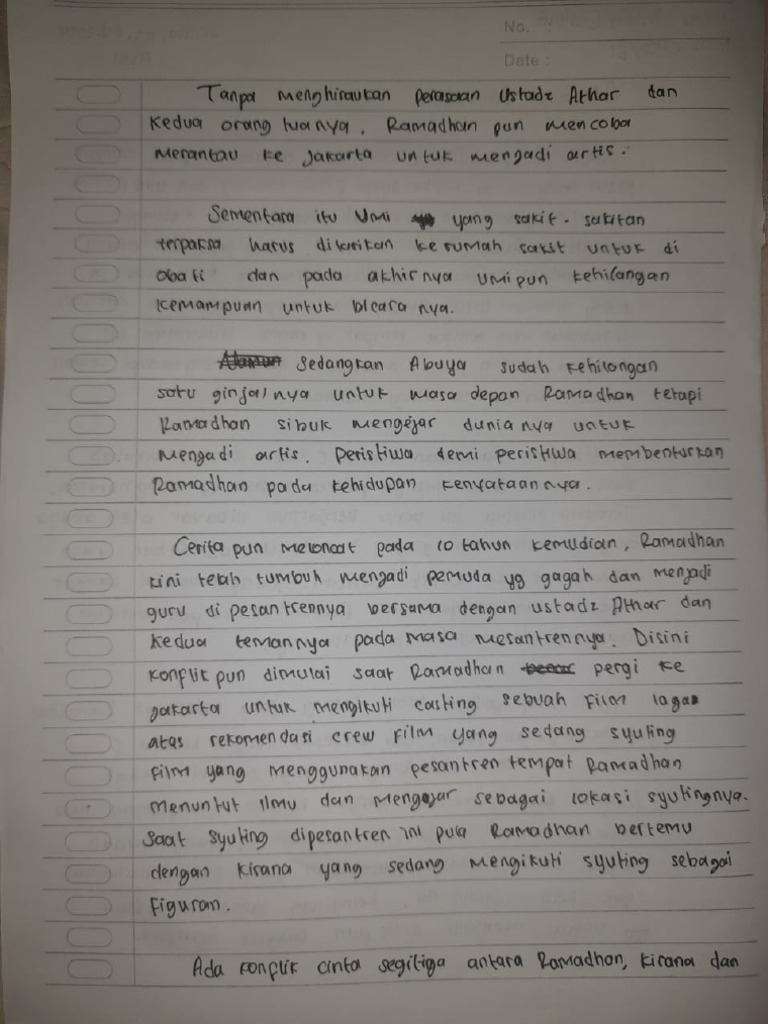 No.
Date :
Tanpa menghiraukan perasaan Ustadz Athar dan
kedua orang tuanya. Ramadhan pun mencoba
merantau ke Jakarta untuk mengadi artis.
Sementara itu Umi yang sakit-sakitan
terpaksa harus dilarikan kerumah sakit untuk di
obati dan pada akhirnya umipun kehilangan
kemampuan untuk bicara nya.
Sedangkan Abuya sudah kehilangan
satu ginjalnya untuk masa depan Ramadhan tetapi
Ramadhan sibuk mengejar dunia nya untuk
mengadi artis. Peristiwa demi peristiwa membenturkan
Ramadhan pada kehidupan kenyataannya.
Cerita pun meloncat pada 10 tahun kemudian, Ramadhan
kini telah tumbuh mengadi pemuda yg gagah dan menjadi
guru di pesantrennya bersama dengan ustadz Athar dan
kedua temannya pada masa mesantrennya. Disini
konflik pun dimulai saat Ramadhan pergi ke
Jakarta untuk mengikuti casting sebuah film laga
atas rekomendasi crew film yang sedang syuting
film yang menggunakan pesantren tempat Ramadhan
menuntut ilmu dan mengajar sebagai lokasi syutingnya.
Saat syuting dipesantren ini pula Ramadhan bertemu
dengan Kirana yang sedang mengikuti syuting sebagai
figuran.
Ada konflik cinta segitiga antara Ramadhan, Kirana dan